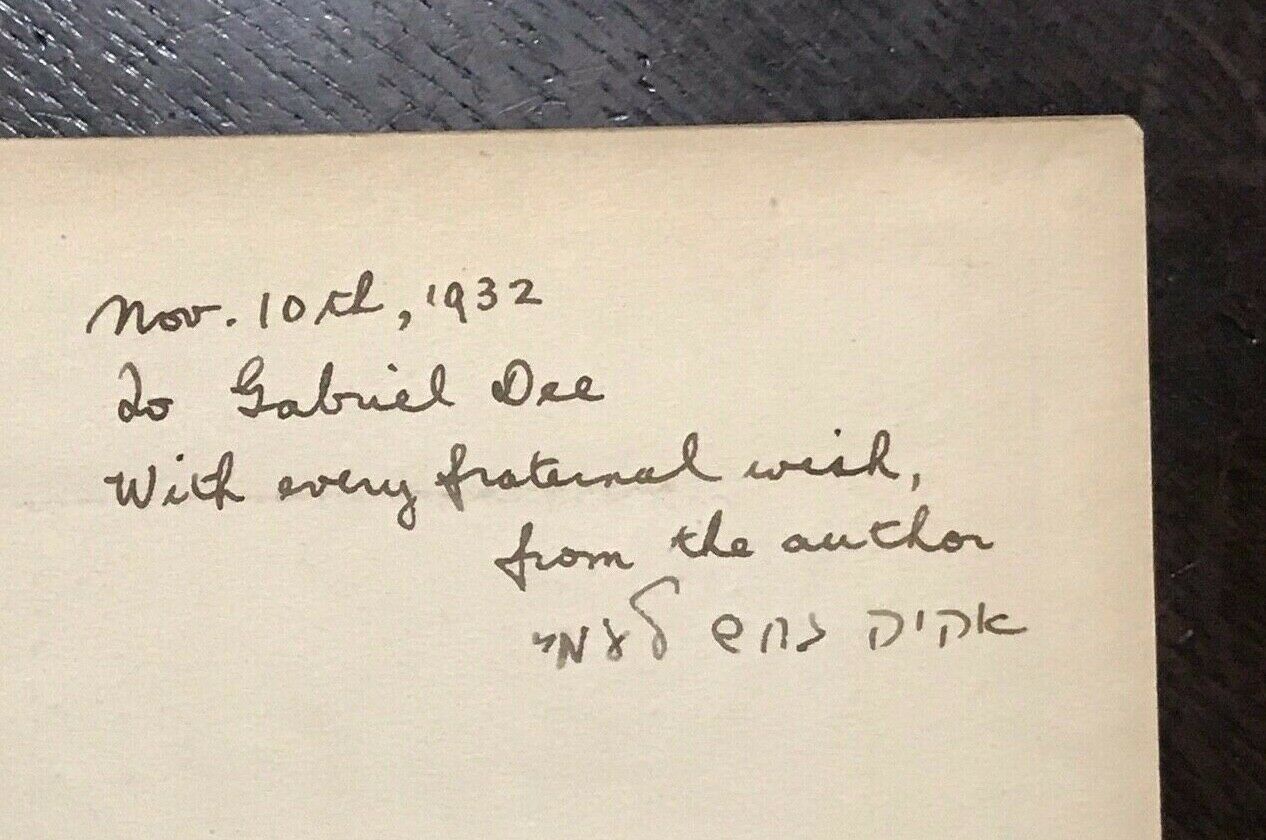 Nov. 10th, 1932
To Gabriel Dee
With every fraternal wish,
from the author
אהיה נחש לעמי